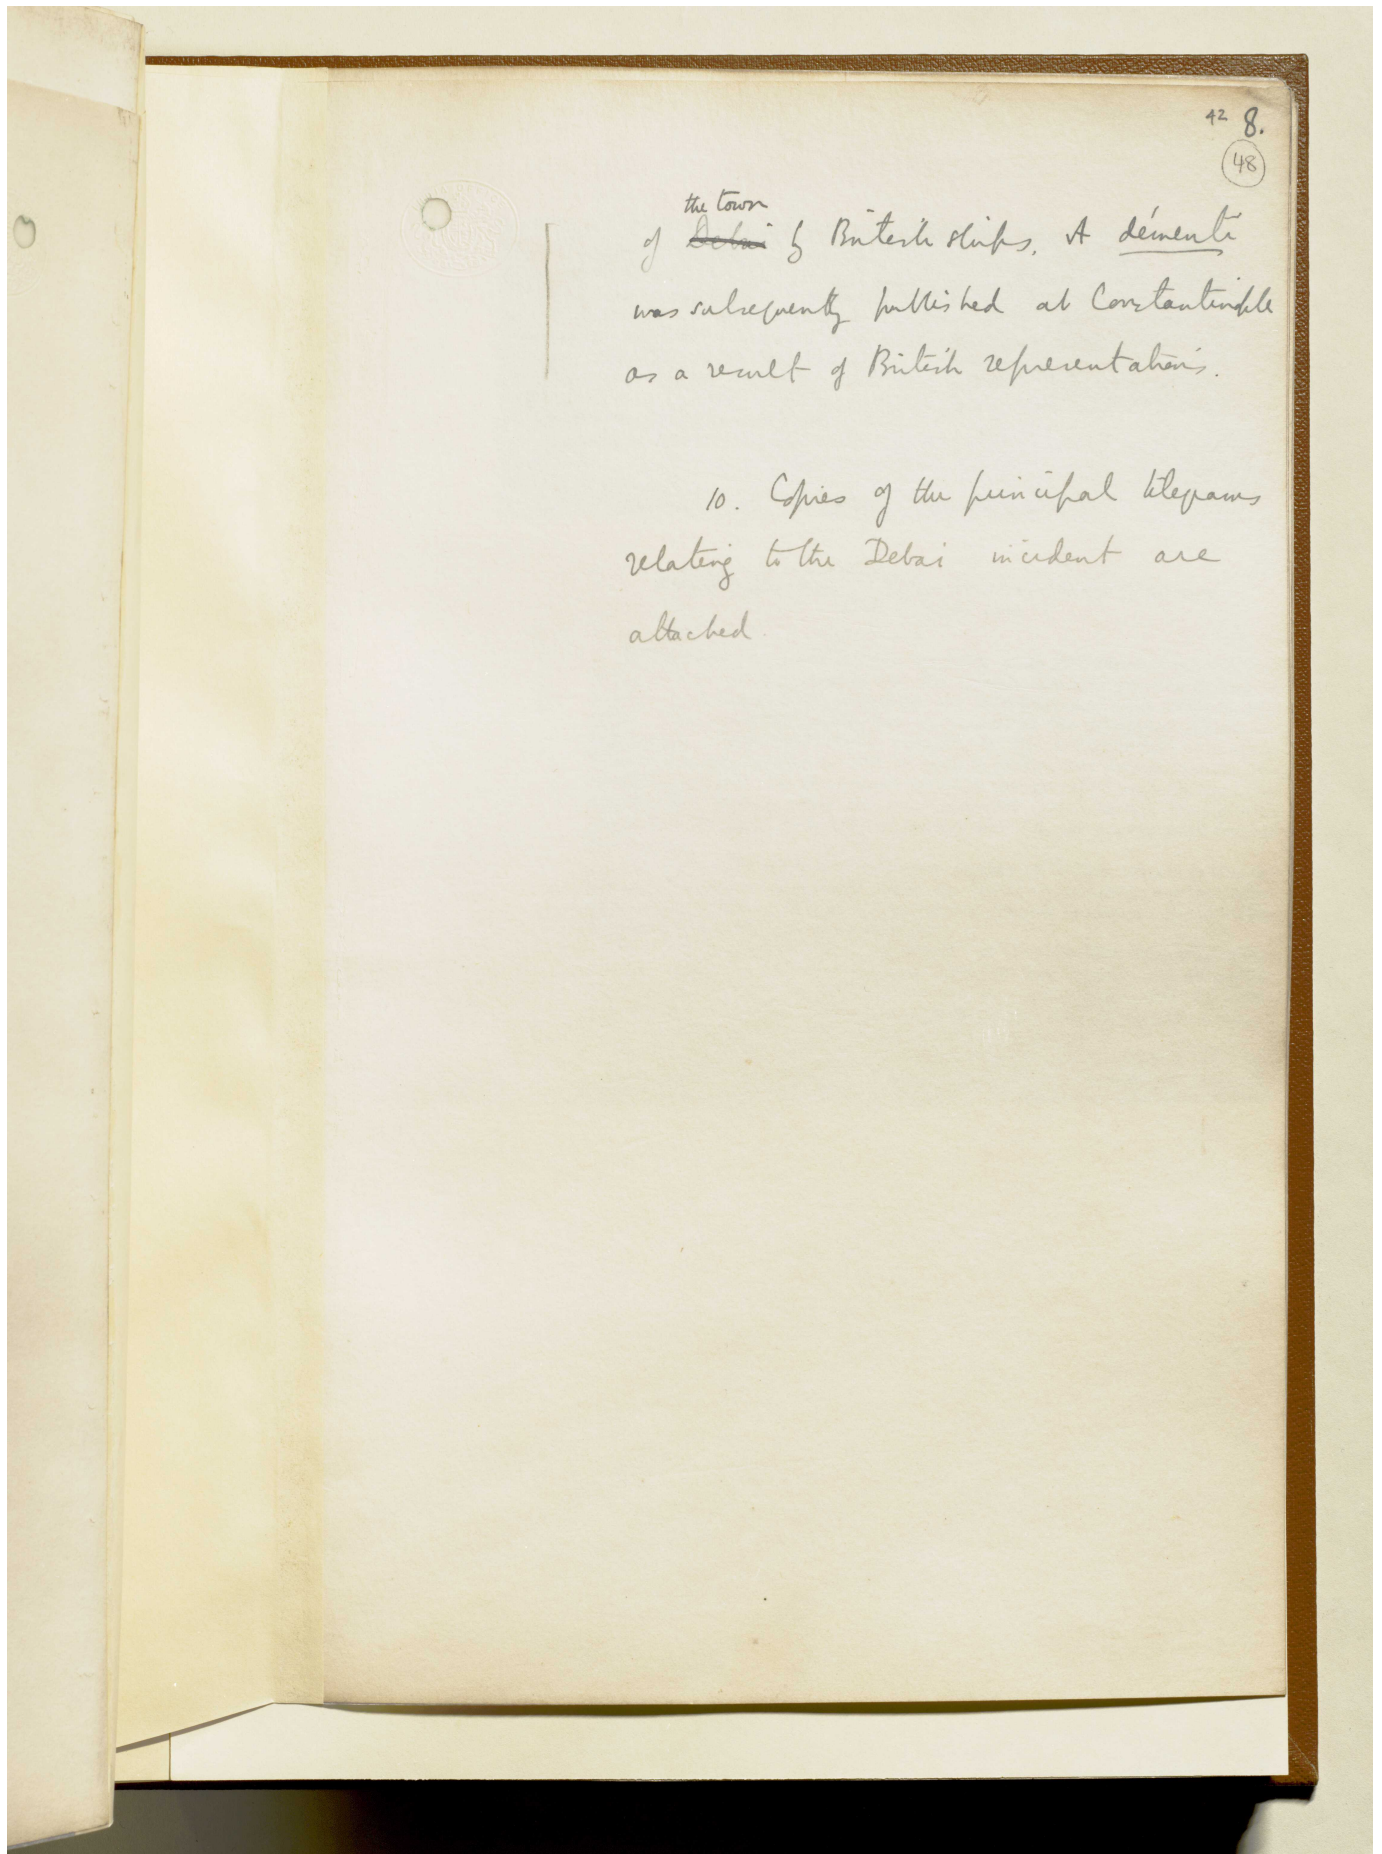 42 8.
48
the town
of Debai by British ships. A démenti
was subsequently published at Constantinople
as a result of British representations.
10. Copies of the principal telegrams
relating to the Debai incident are
attached.